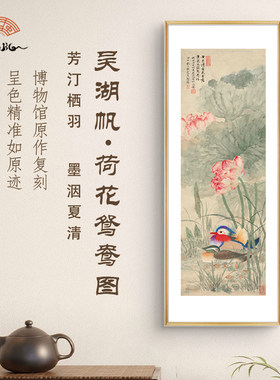 吴湖帆·荷花鸳鸯图
芳汀栖羽 墨洇夏清
博物馆原作复刻
呈色精准如原迹